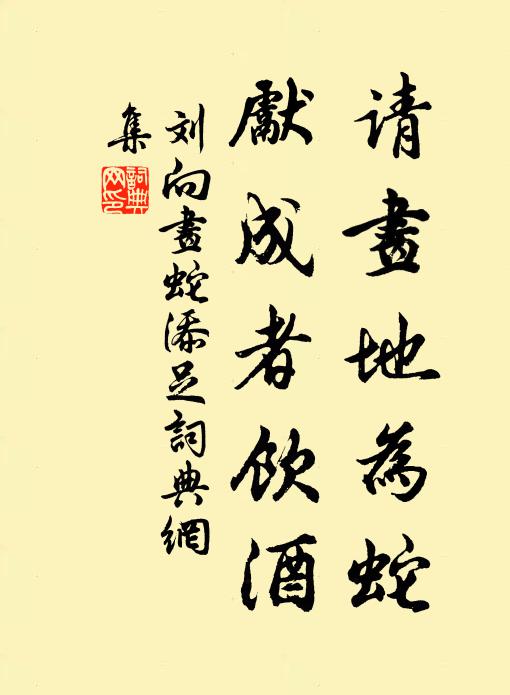 请畫地為蛇
獻成者飲酒
刘向畫蛇添足詞典網
集
詞典网印